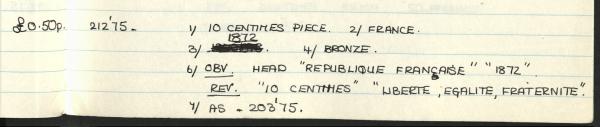 £0.50p. 212'75. 1/ 10 CENTIMES PIECE. 2/ FRANCE.
1872
3/ 4/ BRONZE.
6/ OBV. HEAD "REPUBLIQUE FRANÇASE" "1872".
REV. "10 CENTIMES" "LIBERTE, EGALITE, FRATERNITE".
7/ AS - 203'75.